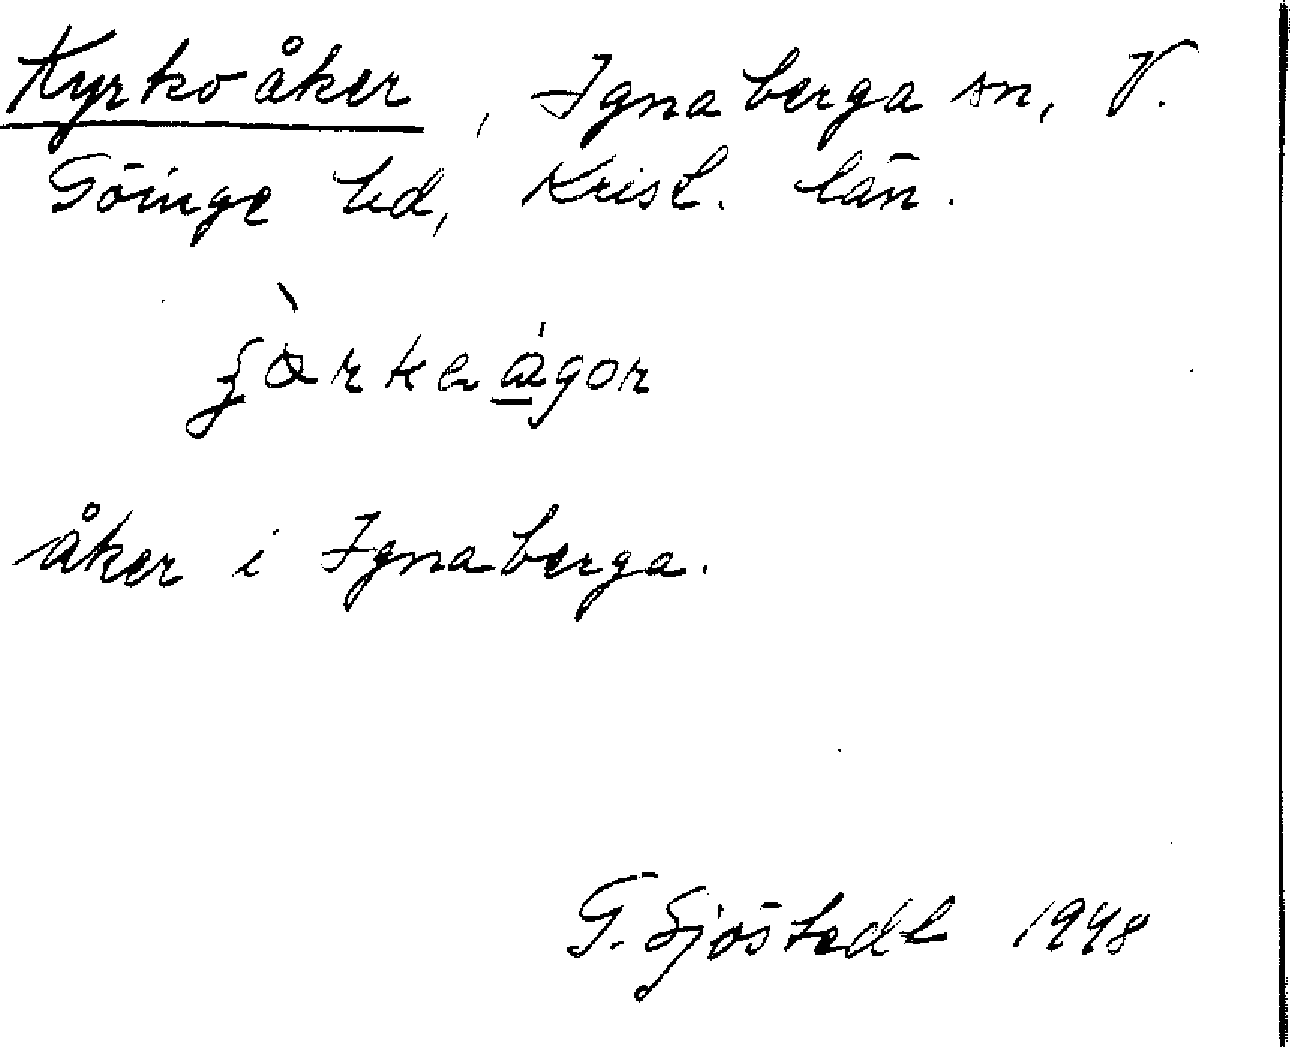 Kyrkoåker, Ignaberga sn, V.
Göinge hd, Krist. län.
åker i Ignaberga.
G. Sjöstedt 1948